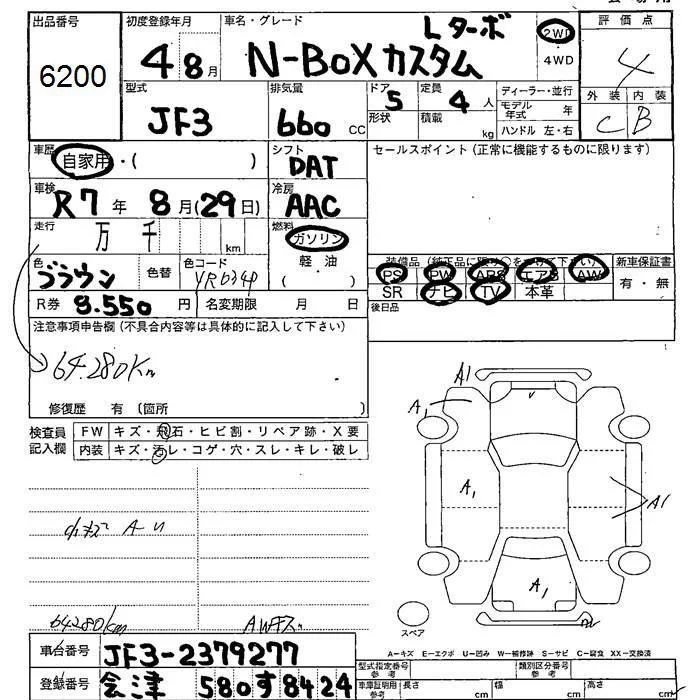 出品番号 初度登録年月 車名・グレード 評価点
6200 4 8月 N-BOX カスタム Lターボ 2WD 4WD 4
型式 排気量 ドア 5 定員 4 人 ディーラー・並行 外装 内装
JF3 660 CC 形状 積載 kg モデル年式 年 C B
ハンドル 左・右
車歴 自家用・( ) シフト DAT セールスポイント(正常に機能するものに限ります)
車検 R7年 8月(29日) 冷房 AAC
走行 万 千 km 燃料 ガソリン
軽・油
( )
色 ブラウン 色替 色コード YR634P
装備品(純正品に限り○をつけて下さい) 新車保証書
PS PW ABS エアB AW 有・無
SR ナビ TV 本革
R券 8.550 円 名変期限 月 日 後日品
注意事項申告欄(不具合内容等は具体的に記入して下さい)
64.280Km
修復歴 有(箇所 )
検査員記入欄 FW キズ・飛石・ヒビ割・リペア跡・X要
内装 キズ・汚レ・コゲ・穴・スレ・キレ・破レ
A1
A1
A1 A1
A1
小キズ A-U
64280km AWキズ
スペア
A-キズ E-エクボ U-凹み W-補修跡 S-サビ C-腐食 XX-交換済
車台番号 JF3-2379277
登録番号 会津 580す8424
型式指定番号 参考 類別区分番号 参考
車庫証明用 参考 長さ cm 幅 cm 高さ cm